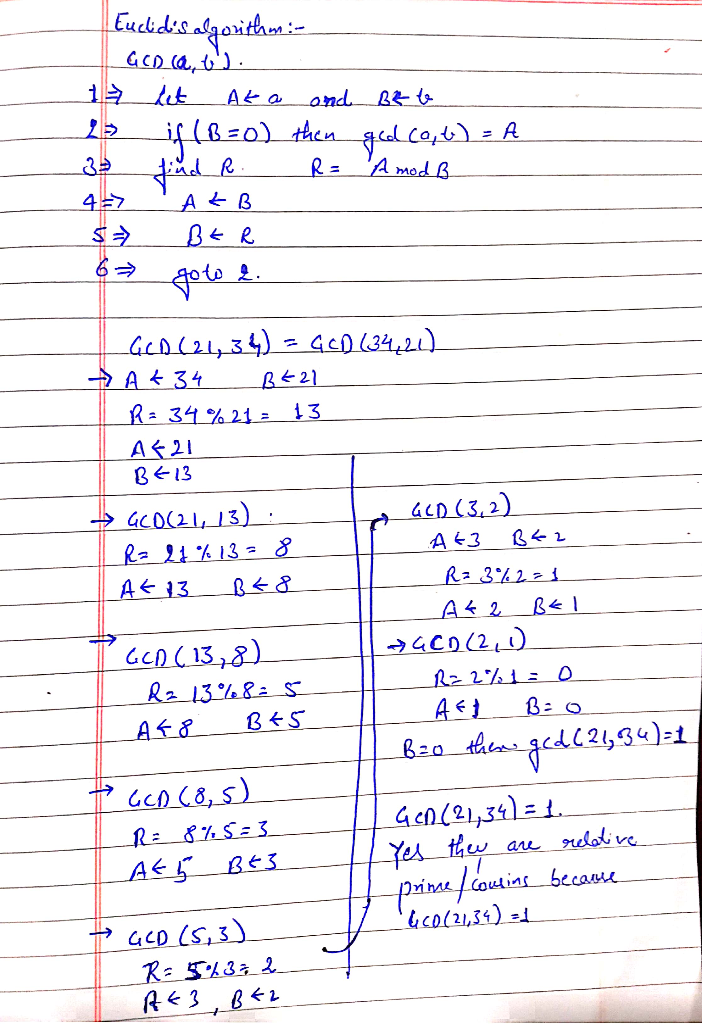 Euclid's algorithm:-
GCD (a, b).
1⇒ let A←a and B←b
2⇒ if (B=0) then gcd (a,b) = A
3⇒ find R. R = A mod B
4⇒ A ← B
5⇒ B ← R
6⇒ goto 2.
GCD (21, 34) = GCD (34,21)
→ A ← 34 B←21
R = 34 % 21 = 13
A←21
B←13
→ GCD(21, 13) :
R = 21 % 13 = 8
A← 13 B←8
→ GCD (13, 8)
R = 13%8 = 5
A←8 B←5
→ GCD (8, 5)
R = 8%5=3
A←5 B←3
→ GCD (5, 3)
R = 5%3 = 2
A←3, B←2
GCD (3,2)
A←3 B←2
R= 3%2=1
A← 2 B←1
→ GCD (2,1)
R= 2%1 = 0
A←1 B=0
B=0 then gcd (21,34)=1
GCD(21,34) = 1.
Yes they are relative
prime / cousins because
GCD(21,34) =1